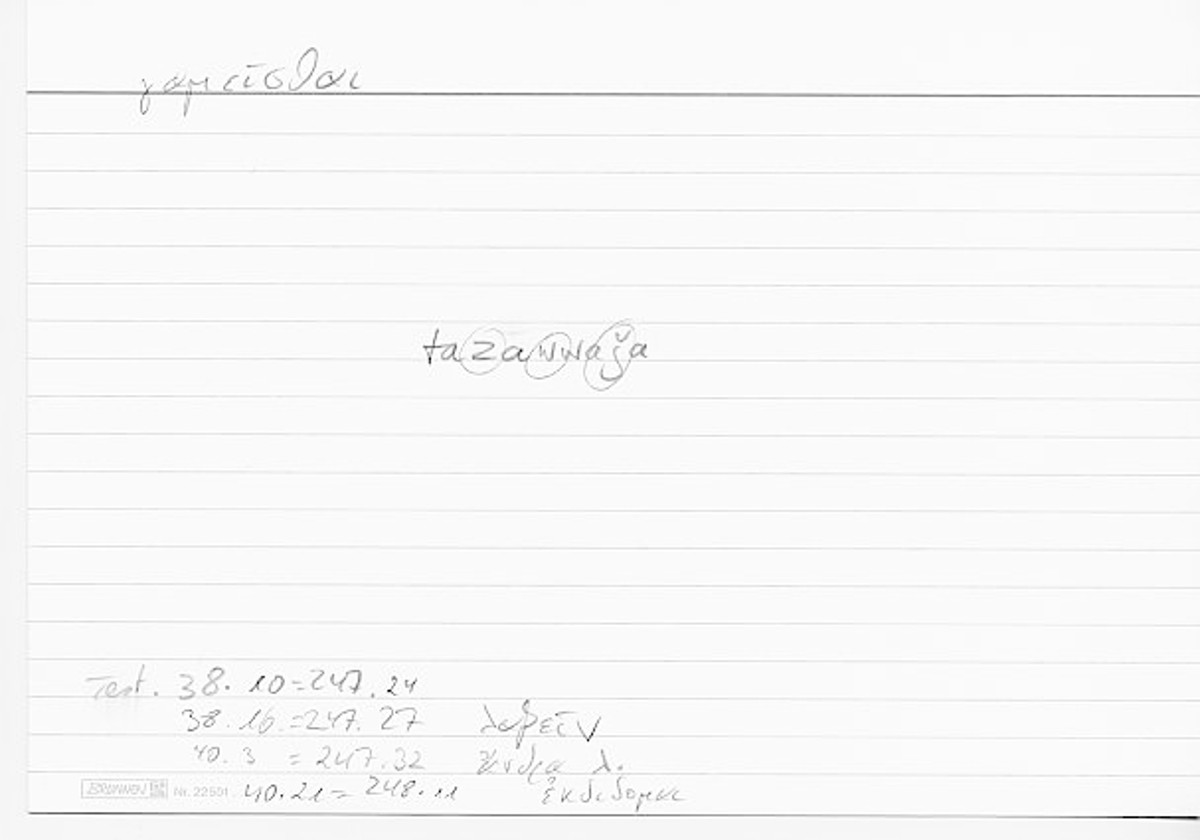 γαμεῖσθαι
tazawwaǧa
Test. 38. 10 = 247. 24
38. 16. = 247. 27 λαβεῖν
40. 3 = 247. 32 ἄνδρα λ.
BRUNNEN Nr. 22501 40. 21 = 248. 11 ἐκδίδομαι